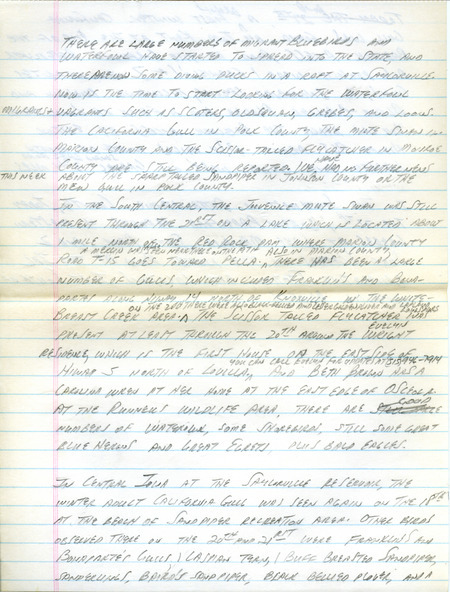 THERE ARE LARGE NUMBERS OF MIGRANT BLUEBIRDS AND
WATERFOWL HAVE STARTED TO SPREAD INTO THE STATE, AND
THERE ARE NOW SOME DIVING DUCKS IN A RAFT AT SAYLORVILLE.
NOW IS THE TIME TO START LOOKING FOR THE WATERFOWL
MIGRANTS + VAGRANTS SUCH AS SCOTERS, OLDSQUAW, GREBES, AND LOONS.
THE CALIFORNIA GULL IN POLK COUNTY THE MUTE SWAN IN
MARION COUNTY AND THE SCISSOR TAILED FLYCATCHER IN MONROE
COUNTY ARE STILL BEING REPORTED. WE HAVE HAD NO FURTHER NEWS
THIS WEEK ABOUT THE SHARPTAILED SANDPIPER IN JOHNSON COUNTY OR THE
MEW GULL IN POLK COUNTY.
IN THE SOUTH CENTRAL, THE JUVENILE MUTE SWAN WAS STILL
PRESENT THROUGH THE 21RST ON A LAKE WHICH IS LOCATED ABOUT
1 MILE NORTH OF THE RED ROCK DAM WHERE MARION COUNTY
A MERLIN WAS
ROAD T-15 GOES TOWARD PELLA. ALSO IN MARION CTY
THERE HAS BEEN A LARGE
NUMBER OF GULLS, WHICH INCLUDED FRANKLIN'S AND BONA-
PARTES ALONG HIWAY 14 NORTH OF KNOXVILLE IN THE WHITE-
ON THE 20TH THERE WERE
BREAST CREEK AREA. THE SCISSOR TAILED FLYCATCHER WAS
PRESENT AT LEAST THROUGH THE 20TH AROUND THE EVELYN WRIGHT
RESIDENCE, WHICH IS THE FIRST HOUSE ON THE EAST SIDE OF
YOU CAN CALL
HIWAY 5 NORTH OF LOVILIA. AND BETH BROWN HAS A
CAROLINA WREN AT HER HOME AT THE EAST EDGE OF OSCEOLA.
AT THE RUNNELLS WILDLIFE AREA, THERE ARE GOOD
NUMBERS OF WATERFOWL, SOME SHOREBIRDS, STILL SOME GREAT
BLUE HERONS AND GREAT EGRETS, PLUS BALD EAGLES.
IN CENTRAL IOWA AT THE SAYLORVILLE RESERVOIR, THE
WINTER ADULT CALIFORNIA GULL WAS SEEN AGAIN ON THE 18TH
AT THE BEACH OF SANDPIPER RECREATION AREA. OTHER BIRDS
OBSERVED THERE ON THE 20TH AND 21RST WERE FRANKLIN'S AND
BONAPARTE'S GULLS, 1 CASPIAN TERN, 1 BUFF BREASTED SANDPIPER,
SANDERLINGS, BAIRD'S SANDPIPER, BLACK BELLIED PLOVER, AND A